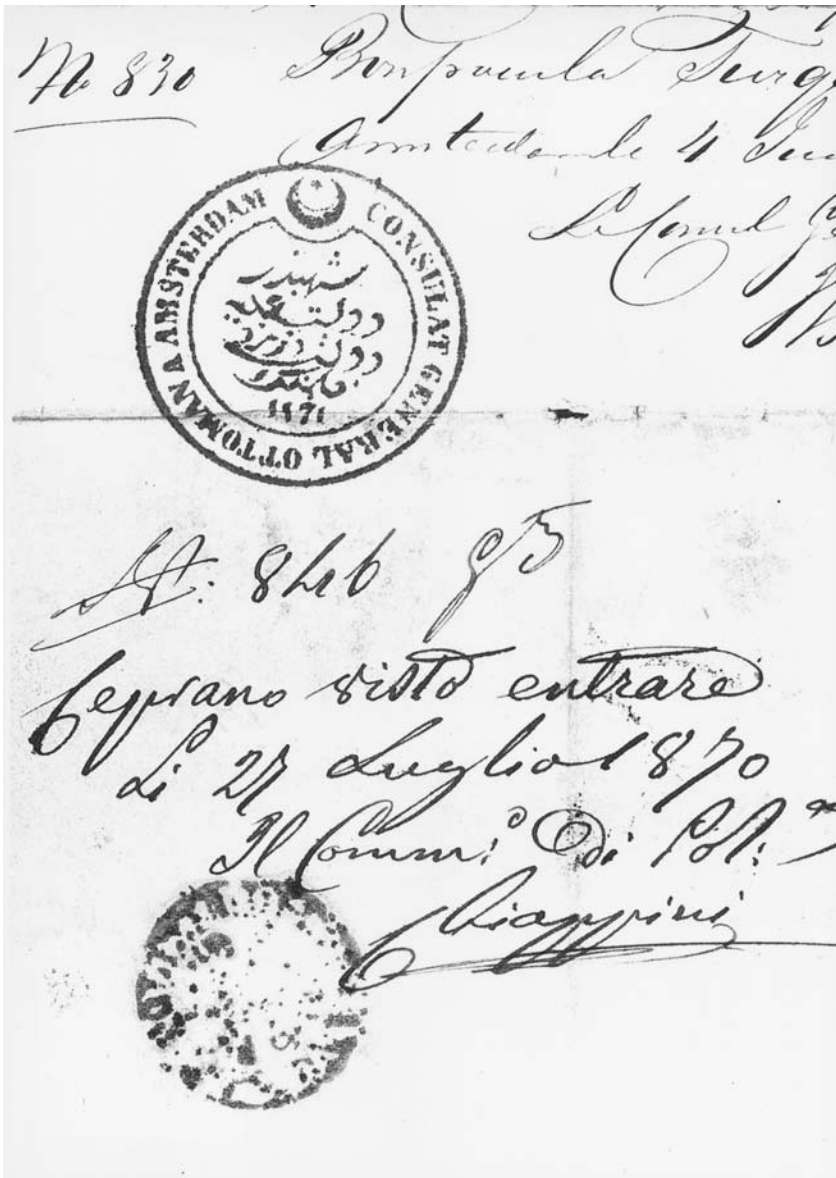 No 830
Bon pour la Turq
Amsterdam le 4 Jui
Le Consul Gé
CONSULAT GENERAL OTTOMAN A AMSTERDAM
شهبندر
دولت عليه
دولت
1871
No: 846
Ceprano visto entrare
Li 27 Luglio 1870
Il Comm.º di Pol:
Chiappini